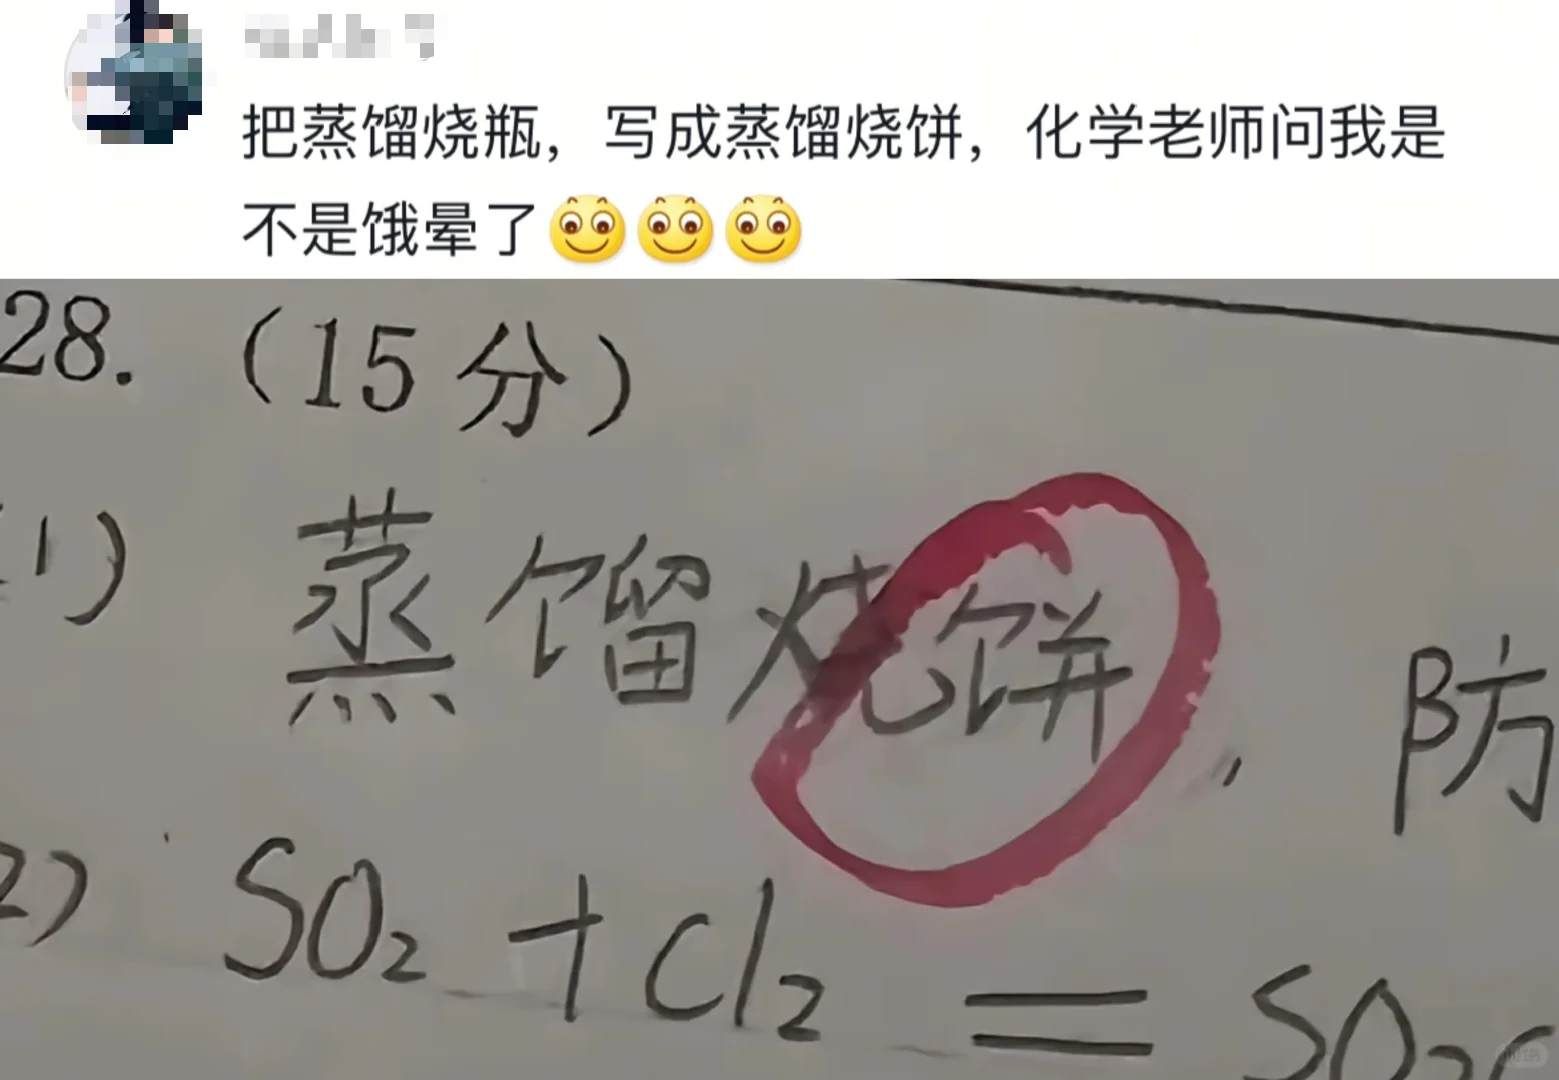 把蒸馏烧瓶，写成蒸馏烧饼，化学老师问我是
不是饿晕了
28.（15分）
(1) 蒸馏烧饼，防
2) SO₂ + Cl₂ = SO₂